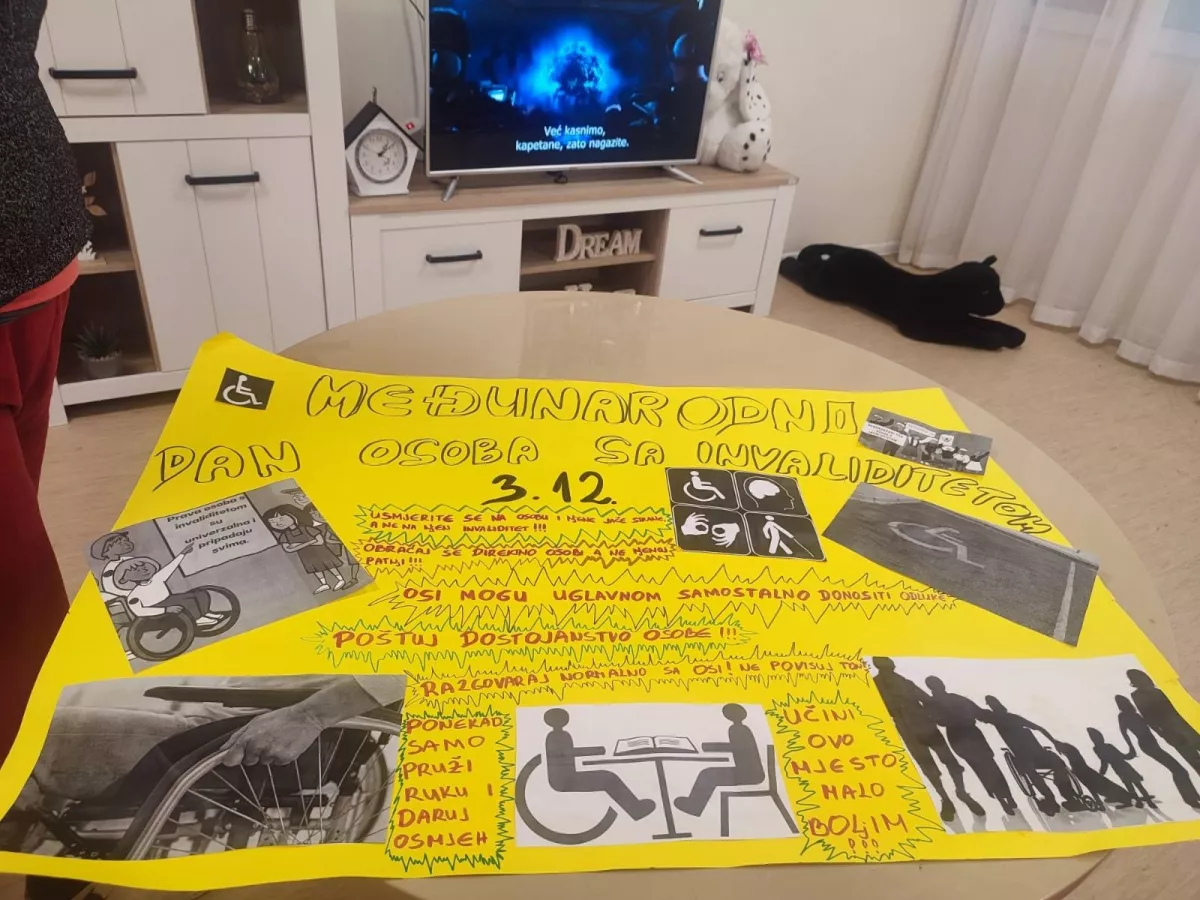 Već kasnimo,
kapetane, zato nagazite.
DREAM
MEĐUNARODNO
DAN OSOBA SA INVALIDITETOM
3.12.
Prava osoba s
invaliditetom
su
univerzalna i
pripadaju
svima.
USMJERITE SE NA OSOBU I NJENE JAČE STRANE
A NE NA NJEN INVALIDITET!!!
OBRAĆAJ SE DIREKTNO OSOBI A NE NJENOJ
PATNJI!!!
OSI MOGU UGLAVNOM SAMOSTALNO DONOSITI ODLUKE
POŠTUJ DOSTOJANSTVO OSOBE!!!
RAZGOVARAJ NORMALNO SA OSI! NE POVISUJ TON
PONEKAD
SAMO
PRUŽI
RUKU I
DARUJ
OSMJEH
UČINI
OVO
MJESTO
MALO
BOLJIM
!!!